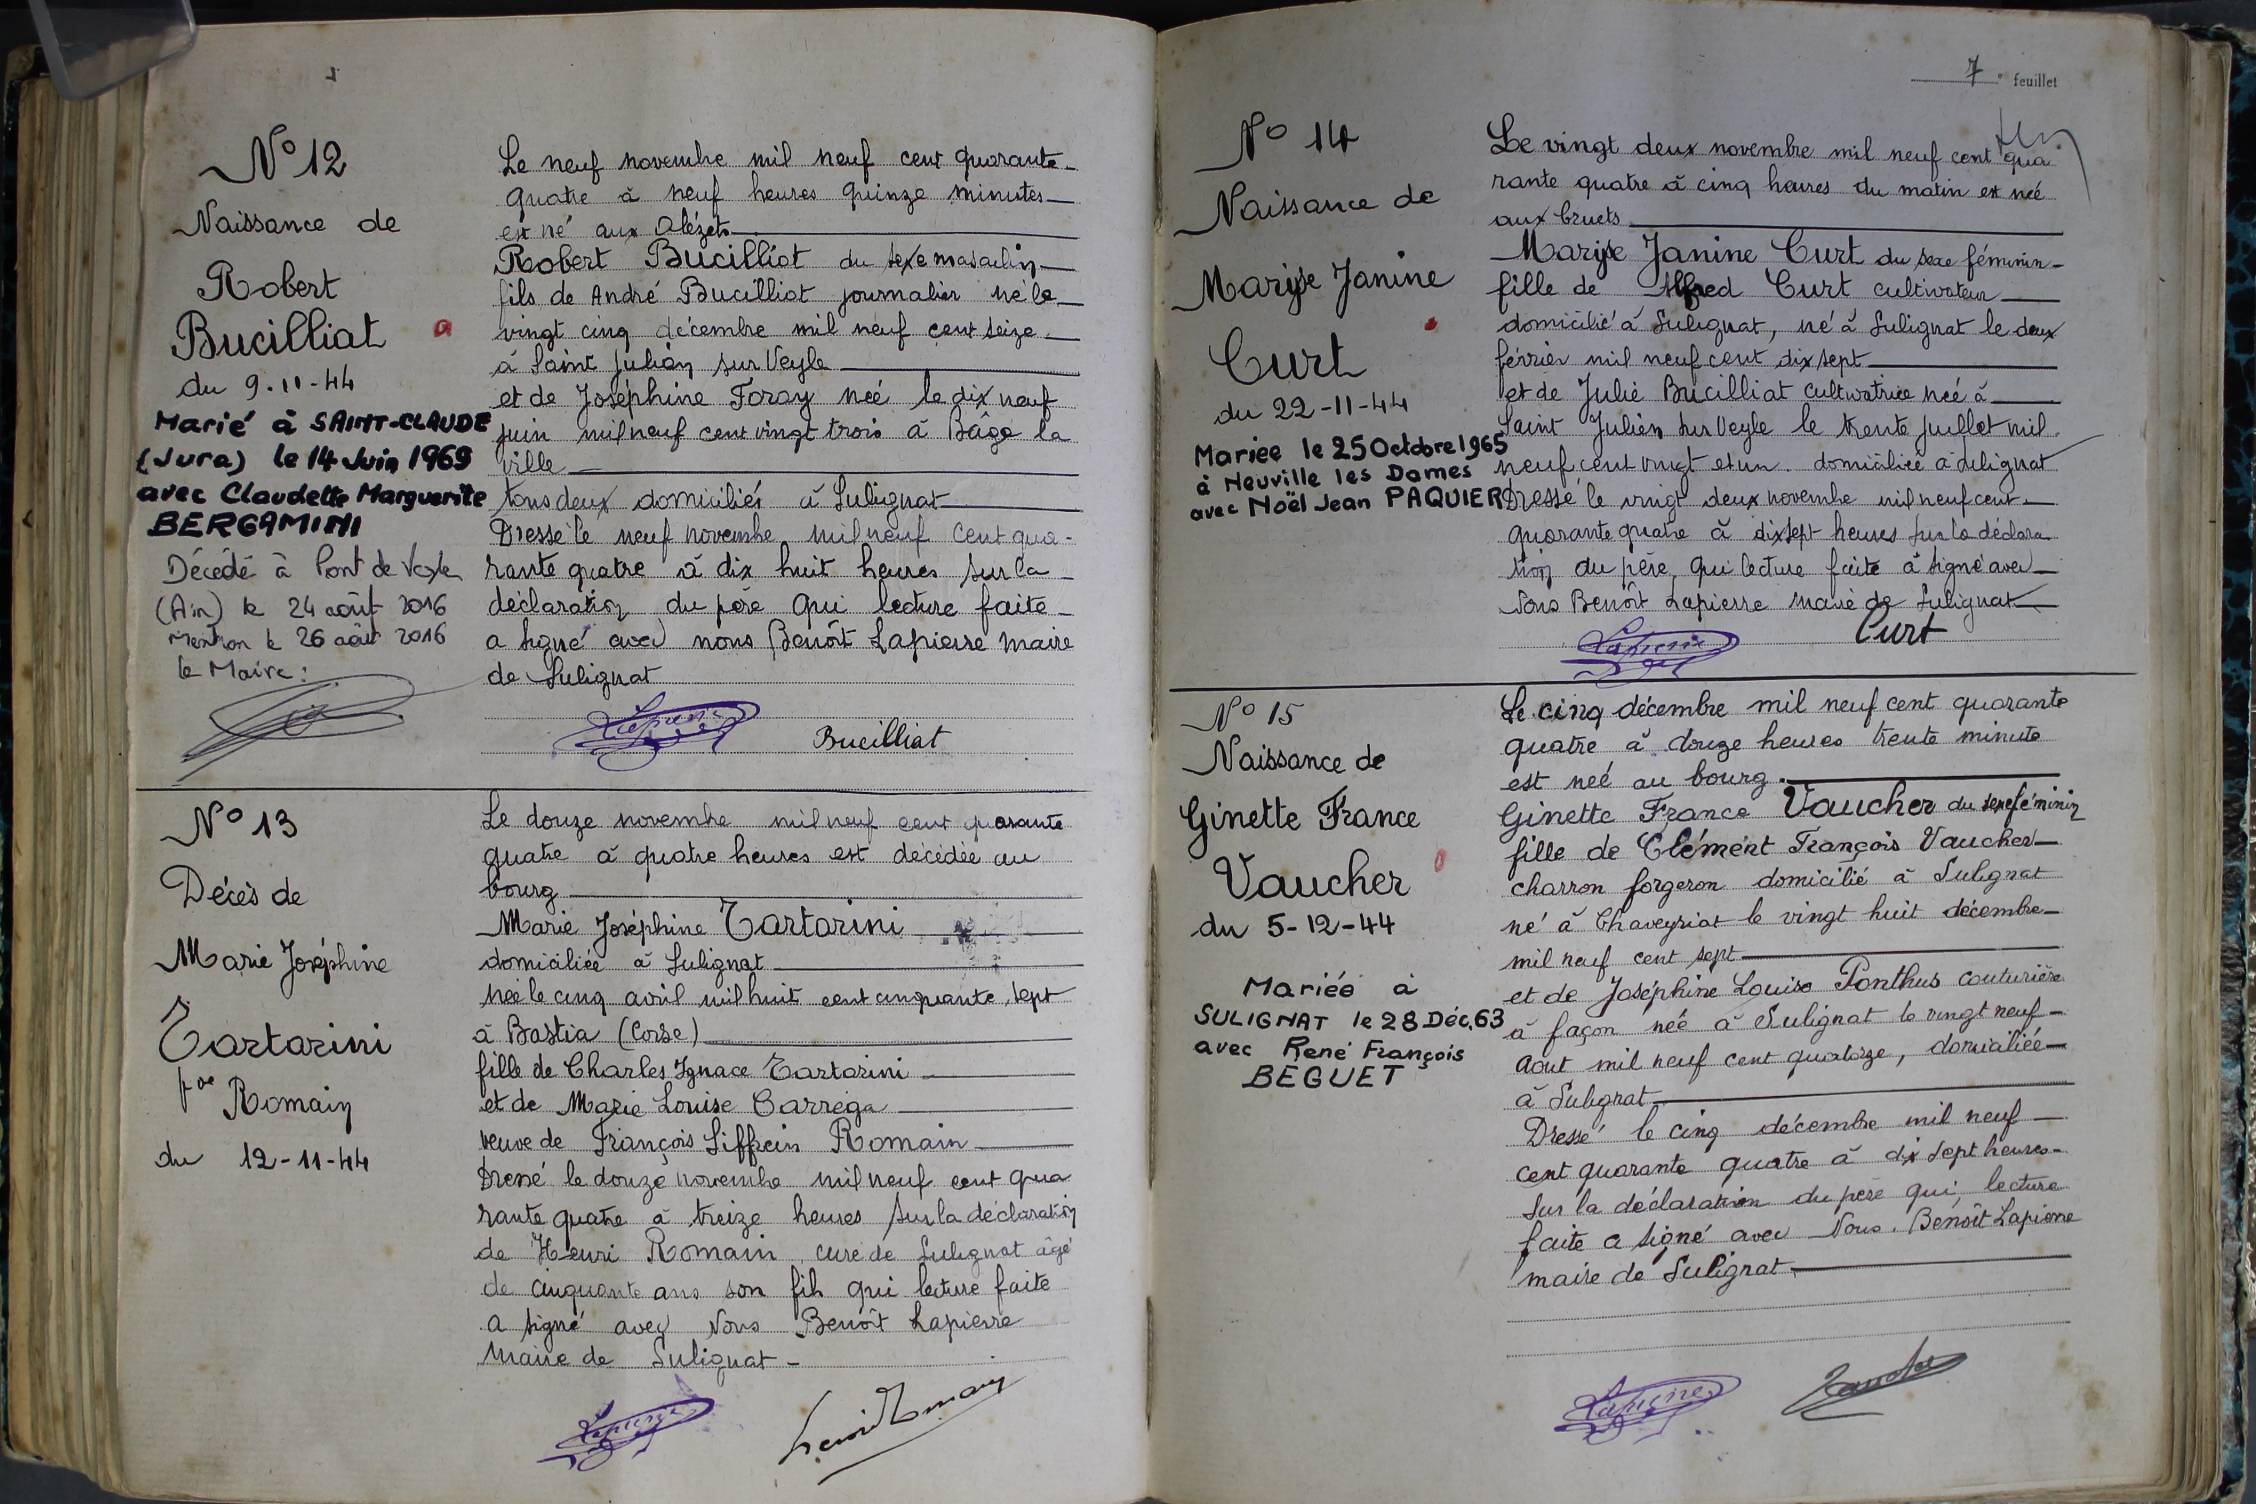 N° 12
Naissance de
Robert
Bucilliat
du 9-11-44
Marié à SAINT-CLAUDE
(Jura) le 14 Juin 1969
avec Claudette Marguerite
BERGAMINI
Décédé à Pont de Veyle
(Ain) le 24 août 2016
Mention le 26 août 2016
le Maire :
Le neuf novembre mil neuf cent quarante
quatre à neuf heures quinze minutes
est né aux
Robert Bucilliat du sexe masculin
fils de André Bucilliat journalier né le
vingt cinq décembre mil neuf cent seize
à Saint Julien sur Veyle
et de Joséphine Foray née le dix neuf
juin mil neuf cent vingt trois à Bâgé la
ville
tous deux domiciliés à Sulignat
Dressé le neuf novembre mil neuf cent qua-
rante quatre à dix huit heures sur la
déclaration du père qui lecture faite
a signé avec nous Benoît Lapierre maire
de Sulignat
Lapierre
Bucilliat
N° 13
Décès de
Marie Joséphine
Tartarini
Vve Romain
du 12-11-44
Le douze novembre mil neuf cent quarante
quatre à quatre heures est décédée au
bourg
Marie Joséphine Tartarini
domiciliée à Sulignat
née le cinq avril mil huit cent cinquante sept
à Bastia (Corse)
fille de Charles Ignace Tartarini
et de Marie Louise Carrega
veuve de François Siffrein Romain
Dressé le douze novembre mil neuf cent qua
rante quatre à treize heures sur la déclaration
de Henri Romain curé de Sulignat âgé
de cinquante ans son fils qui lecture faite
a signé avec Nous Benoît Lapierre
Maire de Sulignat -
Lapierre
Henri Romain
7e feuillet
N° 14
Naissance de
Maryse Janine
Curt
du 22-11-44
Mariée le 25 Octobre 1965
à Neuville les Dames
avec Noël Jean PAQUIER
Le vingt deux novembre mil neuf cent qua
rante quatre à cinq heures du matin est née
aux bruets
Maryse Janine Curt du sexe féminin
fille de Alfred Curt cultivateur
domicilié à Sulignat, né à Sulignat le deux
février mil neuf cent dix sept
et de Julie Bucilliat cultivatrice née à
Saint Julien sur Veyle le trente juillet mil
neuf cent vingt et un domiciliée à Sulignat
Dressé le vingt deux novembre mil neuf cent
quarante quatre à dix sept heures sur la déclara
tion du père, qui lecture faite à signé avec
Nous Benoît Lapierre maire de Sulignat
Lapierre
Curt
N° 15
Naissance de
Ginette France
Vaucher
du 5-12-44
Mariée à
SULIGNAT le 28 Déc. 63
avec René François
BEGUET
Le cinq décembre mil neuf cent quarante
quatre à douze heures trente minute
est née au bourg
Ginette France Vaucher du sexe féminin
fille de Clément François Vaucher
charron forgeron domicilié à Sulignat
né à Chaveyriat le vingt huit décembre
mil neuf cent sept
et de Joséphine Louise Ponthus couturière
à façon née à Sulignat le vingt neuf
Aout mil neuf cent quatorze, domiciliée
à Sulignat
Dressé le cinq décembre mil neuf
cent quarante quatre à dix sept heures
sur la déclaration du père qui, lecture
faite a signé avec Nous. Benoît Lapierre
maire de Sulignat
Lapierre
Vaucher